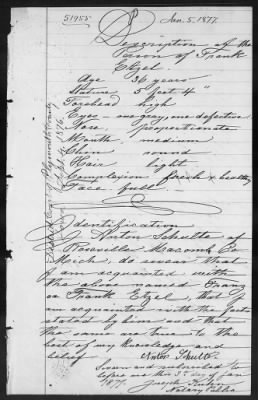 51955
Jan. 5. 1877.
Description of the
Person of Frank
Etzel
Age 36 years
Stature 5 feet 4 "
Forehead high
Eyes – one gray, one defective
Nose, proportionate
Mouth medium
Chin round
Hair light
Complexion fresh & healthy
Face full –
Identification.
I Anton Schulte of
Roseville Macomb Co
Mich, do swear that
I am acquainted with
the above named Franz
or Frank Etzel, that I
am acquainted with the facts
stated by him and that
the same are true to the
best of my knowledge and
belief Anton Schulte
Sworn and subscribed to
before me this 3d day of Jan
1877. Joseph
Notary Public